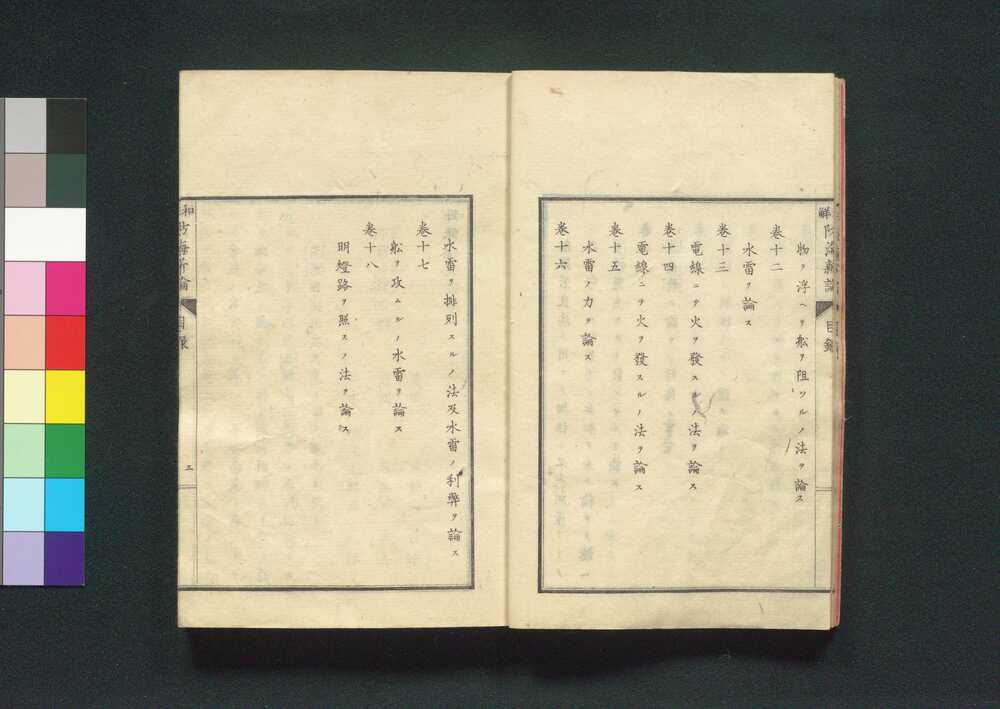 物ヲ浮ヘテ舩ヲ阻ツルノ法ヲ論ス
卷十二
水雷ヲ論ス
卷十三
電線ニテ火ヲ發スルノ法ヲ論ス
卷十四
電線ニテ火ヲ發スルノ法ヲ論ス
卷十五
水雷ノ力ヲ論ス
卷十六
水雷ヲ排列スルノ法及水雷ノ利弊ヲ論ス
卷十七
舩ヲ攻ムルノ水雷ヲ論ス
卷十八
明燈路ヲ照スノ法ヲ論ス
目錄
三